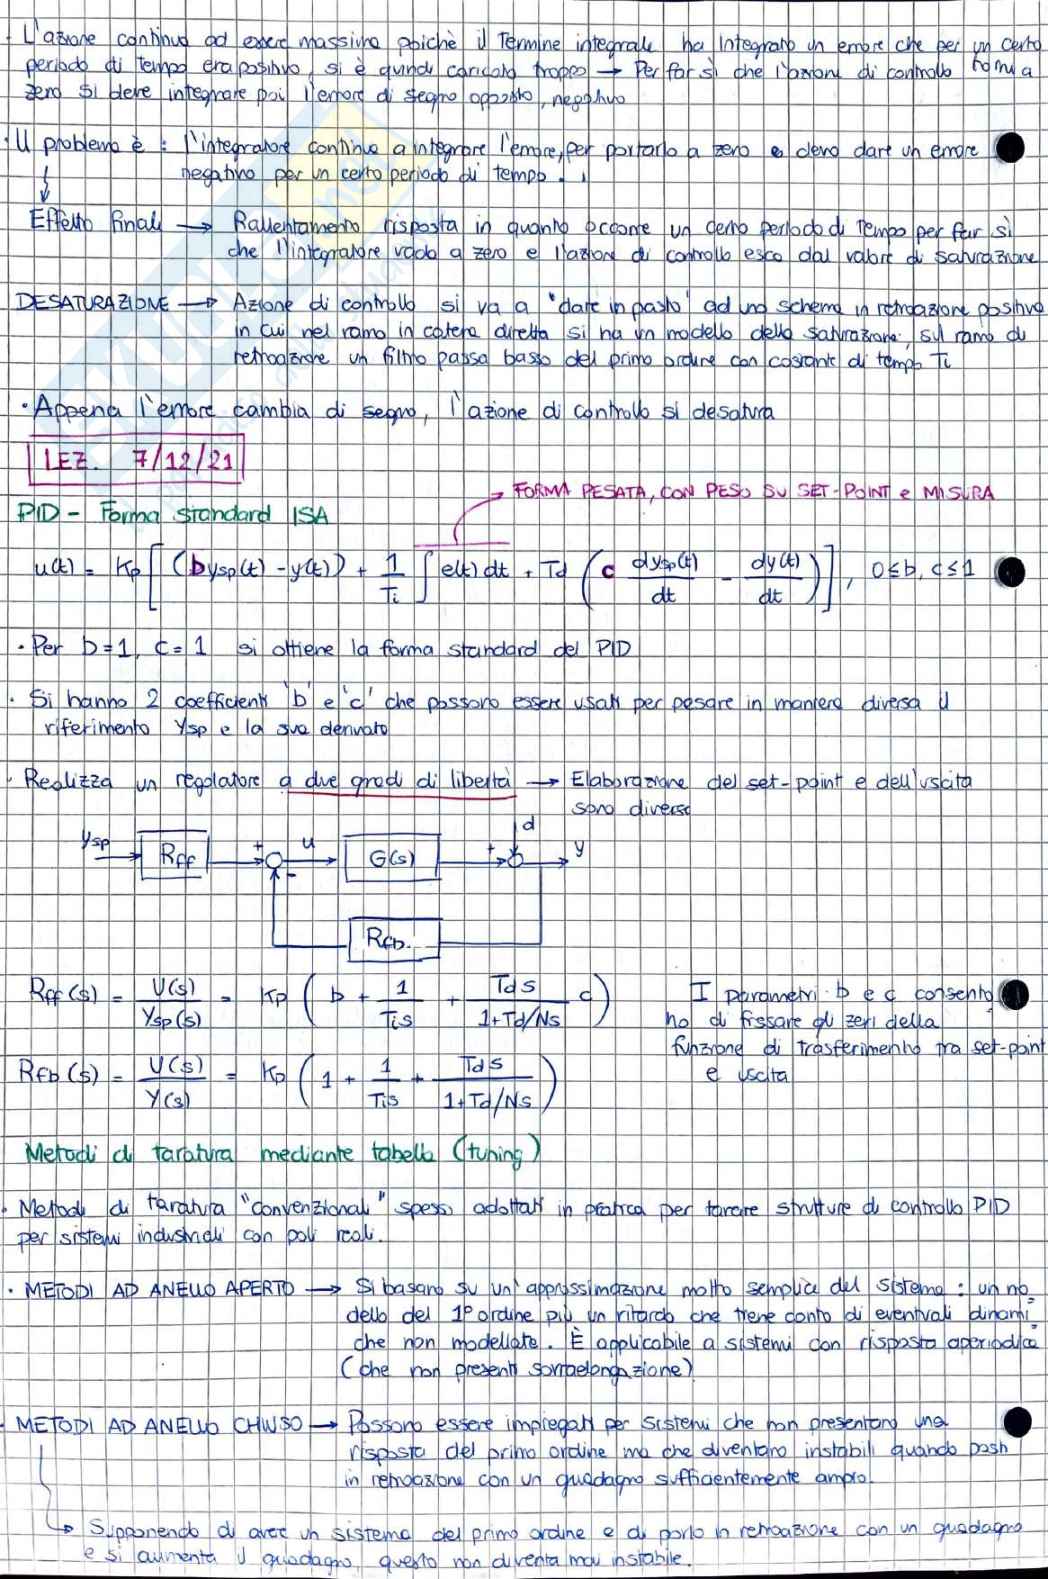 · L'azione continua ad essere massima poichè il Termine integrale ha Integrato un errore che per un certo
periodo di Tempo era positivo, si è quindi caricato troppo → Per far sì che l'azione di controllo torni a
zero si deve integrare poi l'errore di segno opposto, negativo
· Il problema è : l'integratore continua a integrare l'errore, per portarlo a zero e devo dare un errore
negativo per un certo periodo di tempo.
Effetto finale → Rallentamento risposta in quanto occorre un certo periodo di Tempo per far sì
che l'integratore vada a zero e l'azione di controllo esca dal valore di saturazione
DESATURAZIONE → Azione di controllo si va a "dare in pasto" ad uno schema in retroazione positiva
in cui nel ramo in catena diretta si ha un modello della saturazione, sul ramo di
retroazione un filtro passa basso del primo ordine con costante di tempo Ti
· Appena l'errore cambia di segno, l'azione di controllo si desatura
LEZ. 7/12/21
FORMA PESATA, CON PESO SU SET-POINT e MISURA
PID - Forma standard ISA
u(t) = Kp [ (b ysp(t) - y(t)) + 1/Ti ∫ e(t) dt + Td ( c dysp(t)/dt - dy(t)/dt ) ] , 0≤b, c≤1
· Per b=1, c=1 si ottiene la forma standard del PID
· Si hanno 2 coefficienti 'b' e 'c' che possono essere usati per pesare in maniera diversa il
riferimento Ysp e la sua derivata
· Realizza un regolatore a due gradi di libertà → Elaborazione del set-point e dell'uscita
sono diverse
Ysp Rff + - u G(s) + d y
Rfb.
Rff(s) = U(s)/Ysp(s) = Kp ( b + 1/Tis + Tds/1+Td/Ns c )
I parametri b e c consento
no di fissare gli zeri della
funzione di trasferimento tra set-point
e uscita
Rfb(s) = U(s)/Y(s) = Kp ( 1 + 1/Tis + Tds/1+Td/Ns )
Metodi di taratura mediante tabella (tuning)
· Metodi di taratura "convenzionali" spesso adottati in pratica per tarare strutture di controllo PID
per sistemi industriali con poli reali.
· METODI AD ANELLO APERTO → Si basano su un'approssimazione molto semplice del sistema : un mo
dello del 1º ordine più un ritardo che tiene conto di eventuali dinami
che non modellate. È applicabile a sistemi con risposta aperiodica
(che non presenti sovraelongazione)
· METODI AD ANELLO CHIUSO → Possono essere impiegati per sistemi che non presentano una
risposta del primo ordine ma che diventano instabili quando posti
in retroazione con un guadagno sufficientemente ampio.
Supponendo di avere un sistema del primo ordine e di porlo in retroazione con un guadagno
e si aumenta il guadagno, questo non diventa mai instabile.